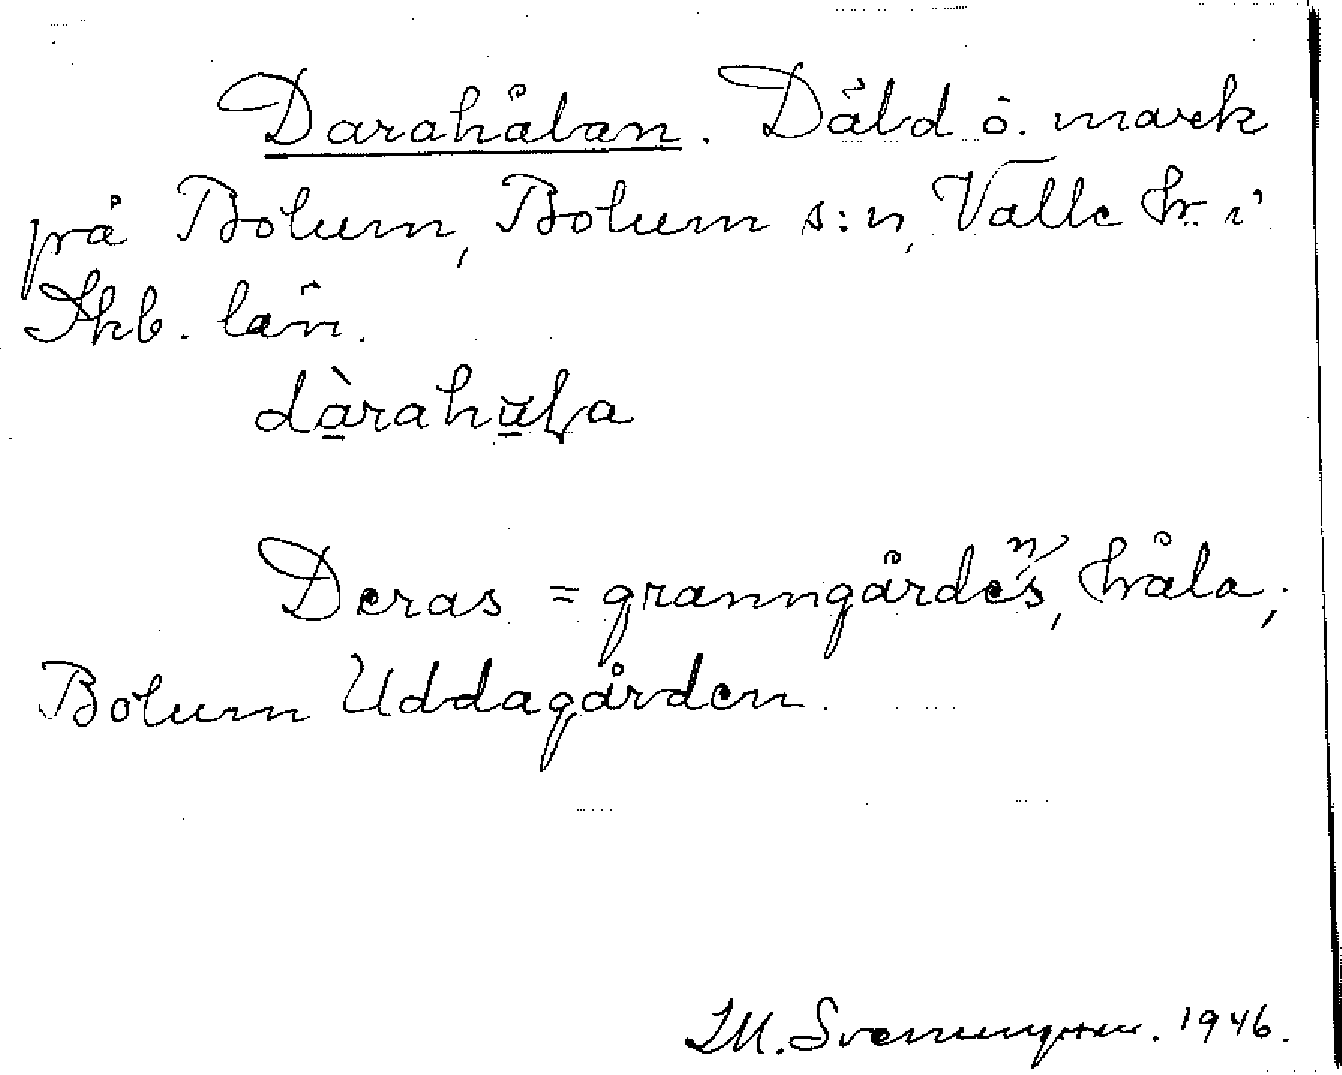 Darahålan. Dåld ö. mark
på Bolum, Bolum s:n, Valle hr. i
Skb. län.
dàrahåla
Deras = granngårdens, håla,
Bolum Uddagården.
M. Svenungsson. 1946.